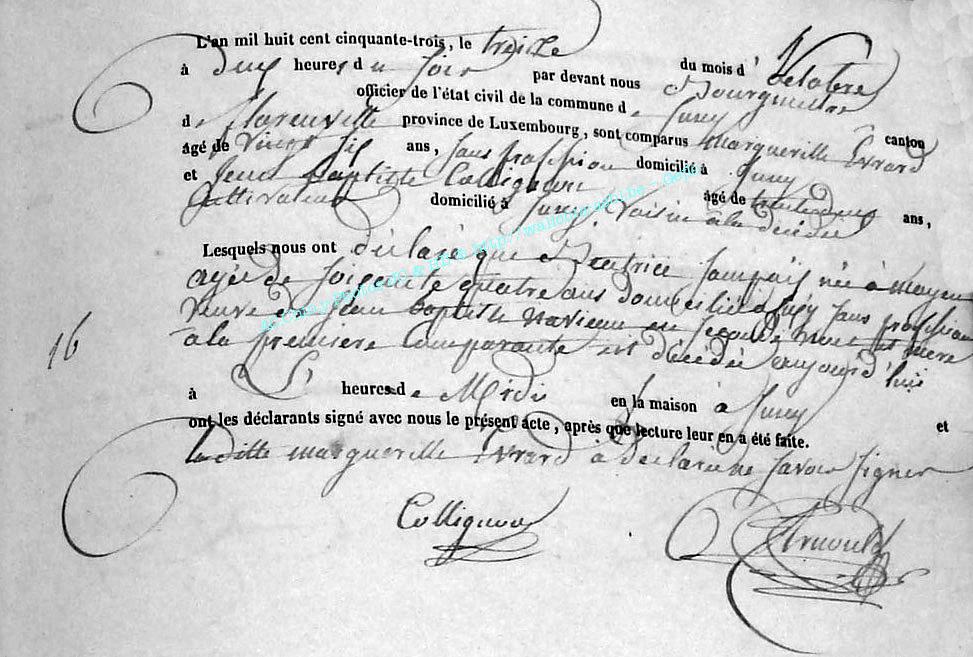 L'an mil huit cent cinquante-trois, le treize du mois d'octobre
à deux heures du soir par devant nous Bourgmestre
officier de l'état civil de la commune de Jusey canton
de Florenville province de Luxembourg, sont comparus Marguerille Evrard
âgé de vingt six ans, sans profession domicilié à Jusey
et Jean Baptiste Collignon âgé de trente deux ans,
Cultivateur domicilié à Jusey, Voisin à la décédée
Lesquels nous ont déclaré que Béatrice née à
agée de soixante quatre ans domiciliée à sans profession
veuve de Jean Baptiste en seconde et mère
à la première Comparante est décédée aujourd'hui
à heures de Midi en la maison à Jusey et
ont les déclarants signé avec nous le présent acte, après que lecture leur en a été faite.
la ditte marguerille Evrard à déclaré ne savoir signer
16
Collignon
Arnould